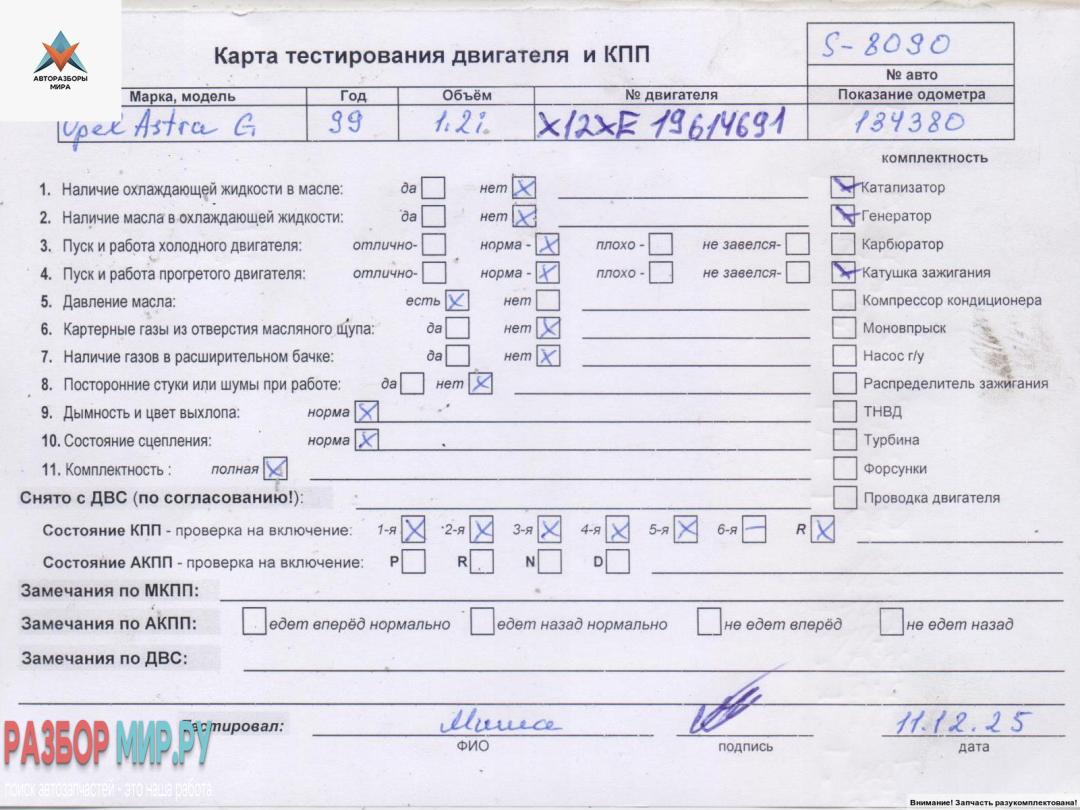 АВТОРАЗБОРЫ
МИРА
Карта тестирования двигателя и КПП
S-8090
№ авто
Марка, модель Год Объём № двигателя Показание одометра
Opel Astra G 99 1.2i X12XE 19614691 134380
комплектность
1. Наличие охлаждающей жидкости в масле: да нет Катализатор
2. Наличие масла в охлаждающей жидкости: да нет Генератор
3. Пуск и работа холодного двигателя: отлично- норма - плохо - не завелся- Карбюратор
4. Пуск и работа прогретого двигателя: отлично- норма - плохо - не завелся- Катушка зажигания
5. Давление масла: есть нет Компрессор кондиционера
6. Картерные газы из отверстия масляного щупа: да нет Моновпрыск
7. Наличие газов в расширительном бачке: да нет Насос г/у
8. Посторонние стуки или шумы при работе: да нет Распределитель зажигания
9. Дымность и цвет выхлопа: норма ТНВД
10. Состояние сцепления: норма Турбина
11. Комплектность : полная Форсунки
Снято с ДВС (по согласованию!): Проводка двигателя
Состояние КПП - проверка на включение: 1-я 2-я 3-я 4-я 5-я 6-я R
Состояние АКПП - проверка на включение: P R N D
Замечания по МКПП:
Замечания по АКПП: едет вперёд нормально едет назад нормально не едет вперёд не едет назад
Замечания по ДВС:
Тестировал: Миша 11.12.25
ФИО подпись дата
РАЗБОР МИР.РУ
поиск автозапчастей - это наша работа
Внимание! Запчасть разукомплектована!